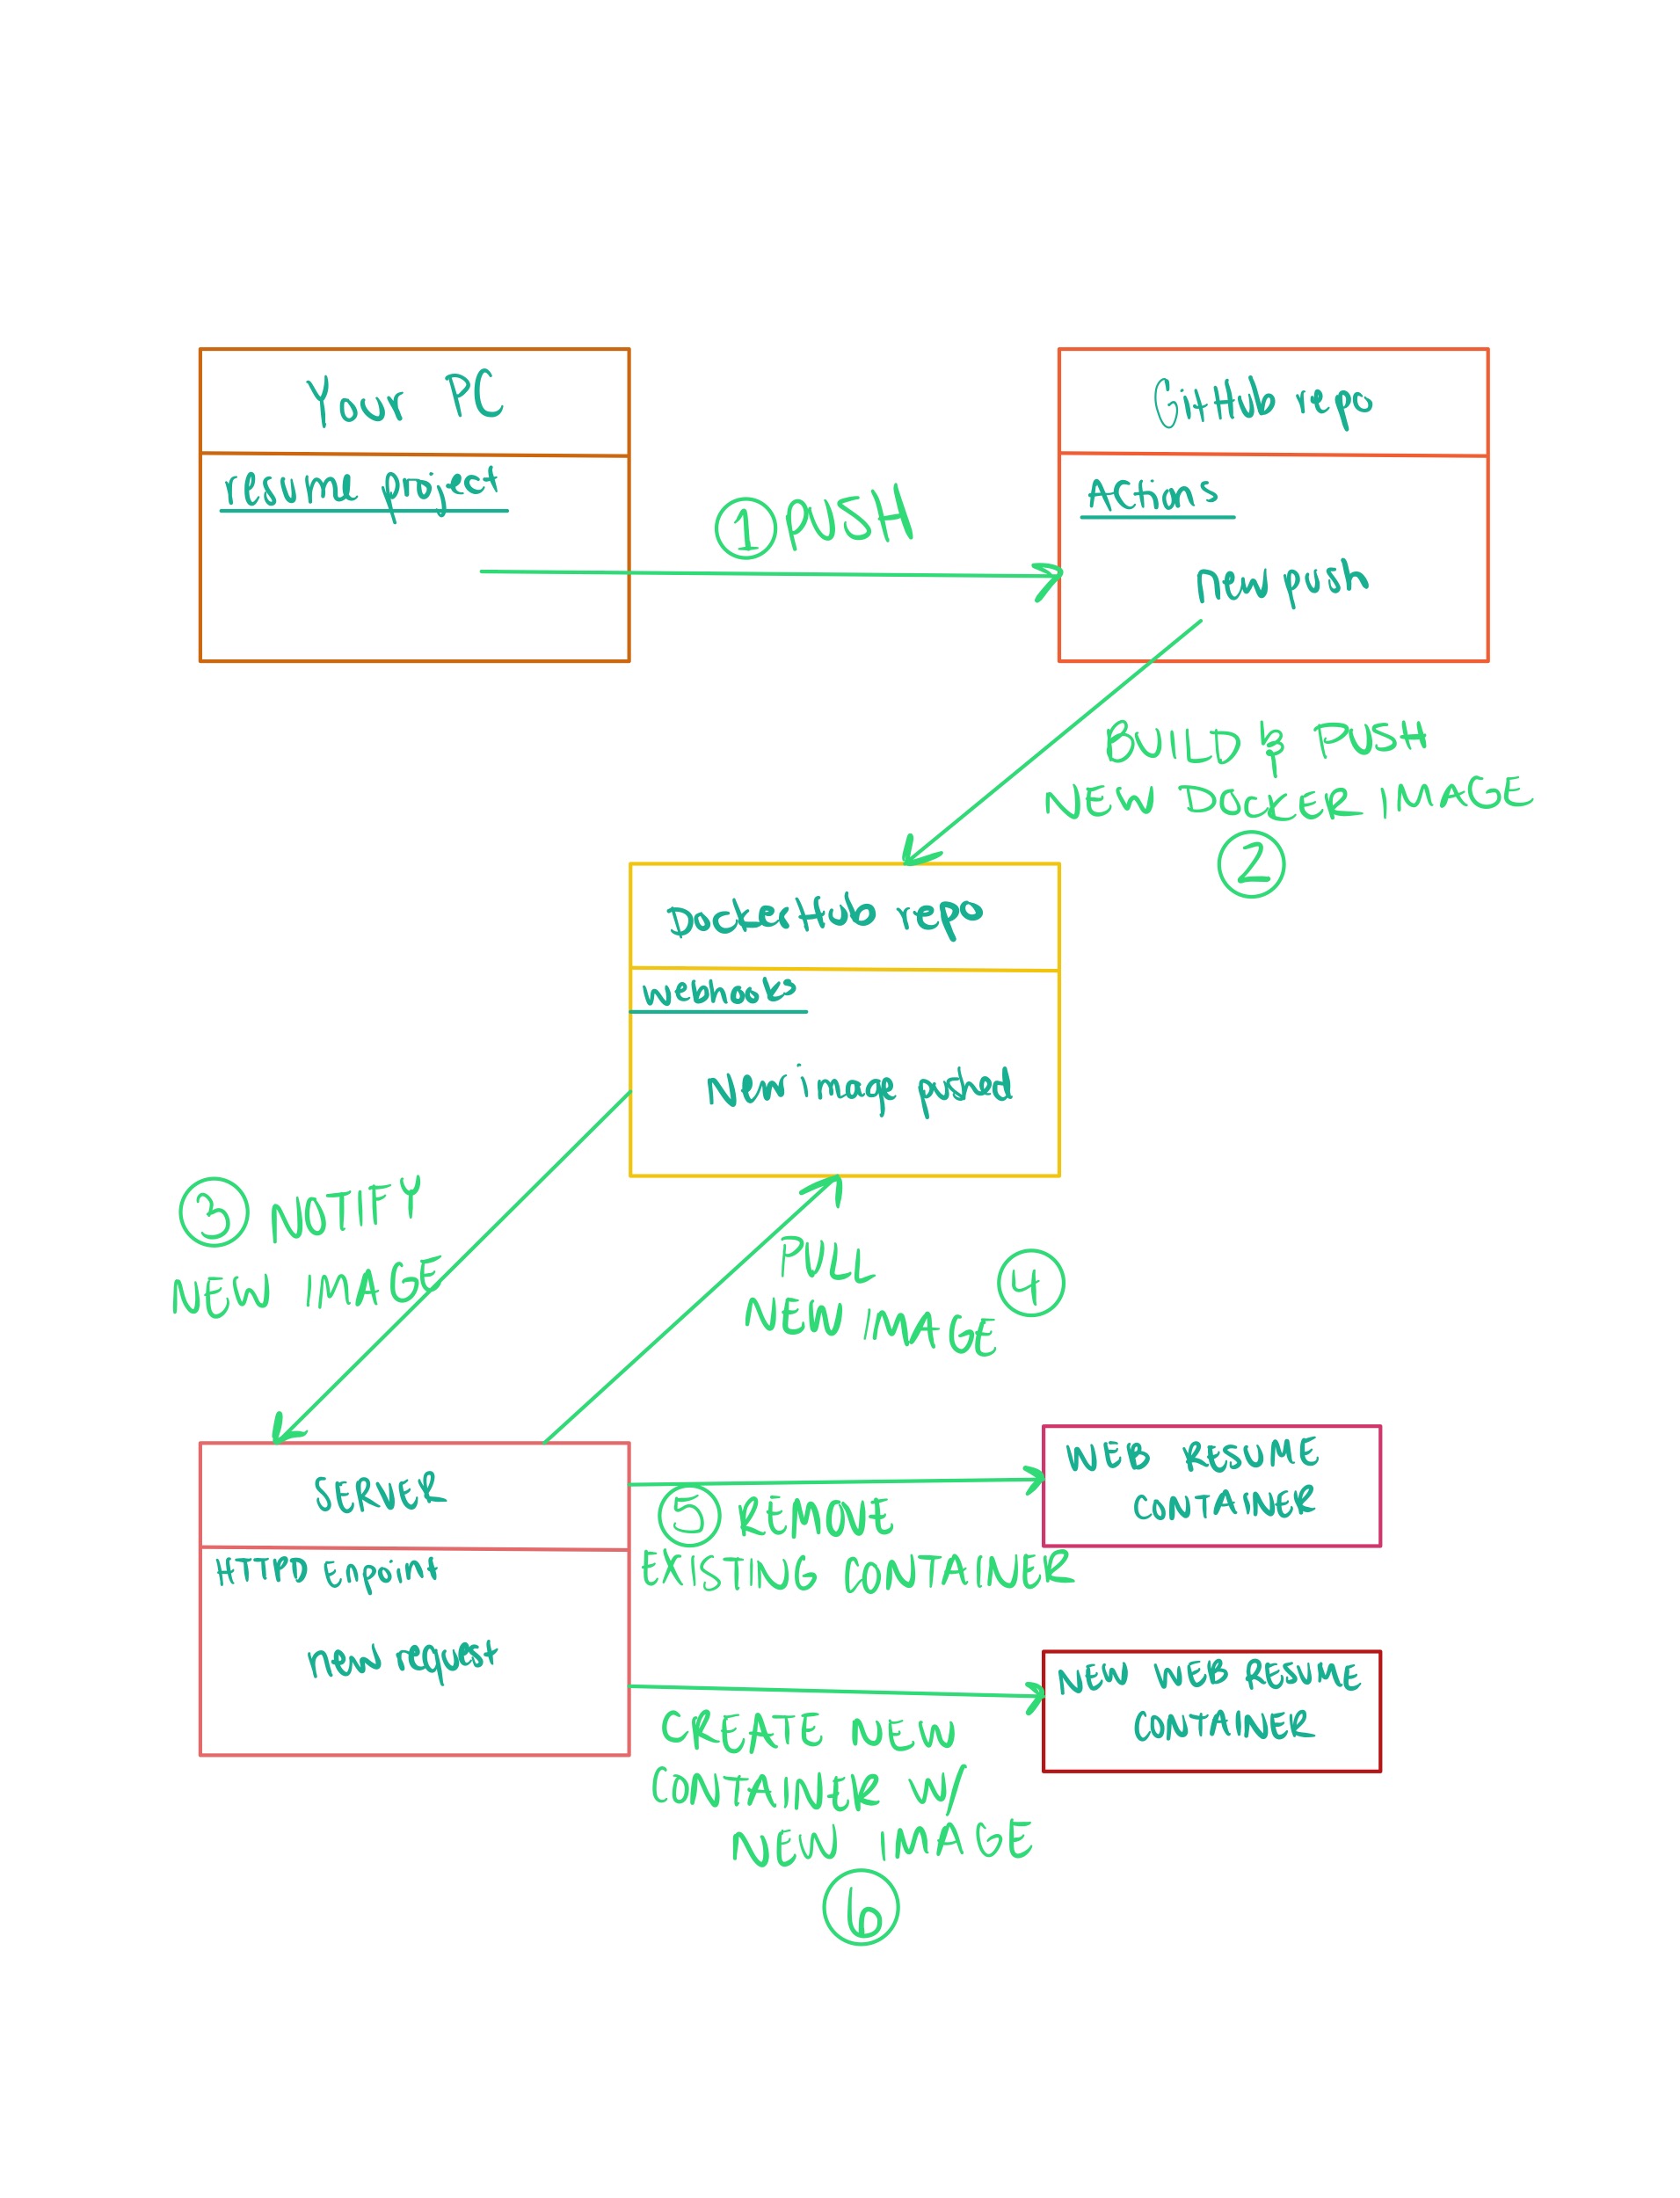 Your PC
resume project
① PUSH
GitHub repo
Actions
New push
BUILD & PUSH
NEW DOCKER IMAGE
②
DockerHub repo
webhooks
New image pushed
③ NOTIFY
NEW IMAGE
PULL
NEW IMAGE ④
SERVER
HTTPD Enpoint
new request
⑤ REMOVE
EXISTING CONTAINER
WEB RESUME
CONTAINER
CREATE NEW
CONTAINER W/
NEW IMAGE
⑥
NEW WEB RESUME
CONTAINER